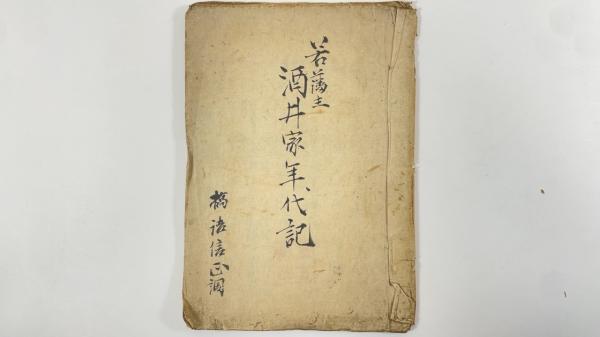 若藩主
酒井家年代記
橋詰信正調